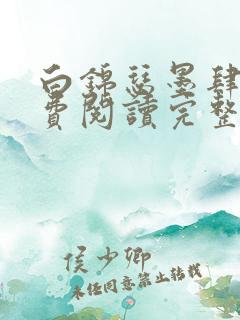 白錦瑟墨肆
費閱讀完整
侯少卿
未經同意禁止轉載